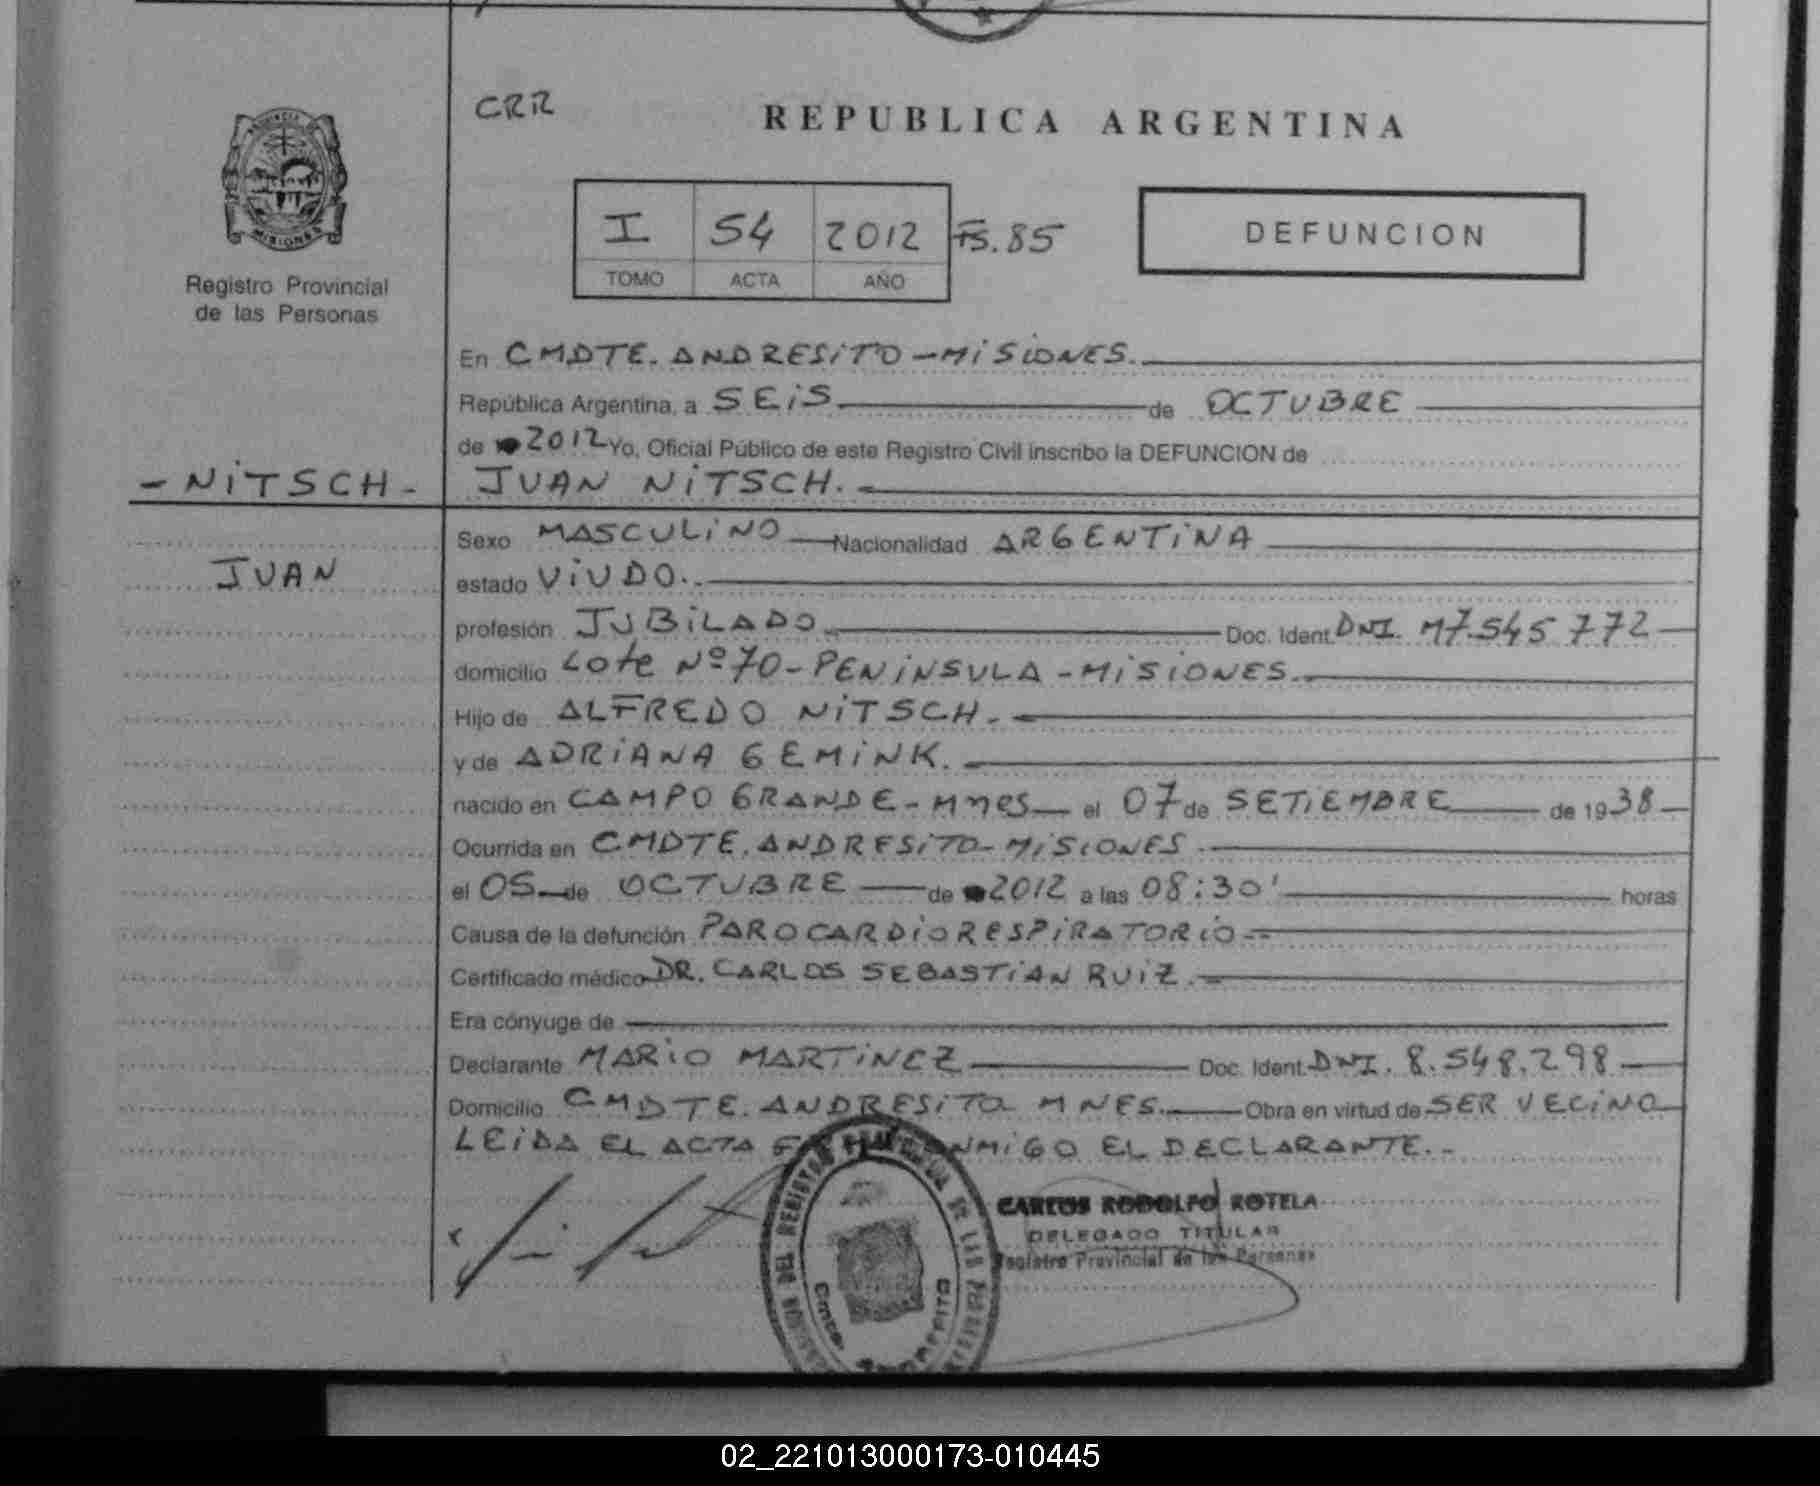 CRR
REPUBLICA ARGENTINA
PROVINCIA DE
MISIONES
Registro Provincial
de las Personas
I 54 2012 Fs. 85
TOMO ACTA AÑO
DEFUNCION
En CMDTE. ANDRESITO - MISIONES.
República Argentina, a SEIS de OCTUBRE
de 2012 Yo, Oficial Público de este Registro Civil inscribo la DEFUNCION de
- NITSCH - JUAN NITSCH. -
Sexo MASCULINO Nacionalidad ARGENTINA
JUAN
estado VIUDO. -
profesión JUBILADO Doc. Ident. DNI. M7.545 772
domicilio Lote Nº 70 - PENINSULA - MISIONES.
Hijo de ALFREDO NITSCH. -
y de ADRIANA GEMINK. -
nacido en CAMPO GRANDE - Mnes el 07 de SETIEMBRE de 1938
Ocurrida en CMDTE. ANDRESITO - MISIONES.
el 05 de OCTUBRE de 2012 a las 08:30' horas
Causa de la defunción PARO CARDIORESPIRATORIO -
Certificado médico DR. CARLOS SEBASTIAN RUIZ. -
Era cónyuge de
Declarante MARIO MARTINEZ Doc. Ident. DNI. 8.548.298
Domicilio CMDTE. ANDRESITO MNES. Obra en virtud de SER VECINO
LEIDA EL ACTA EL DECLARANTE. -
CARLOS RODOLFO ROTELA
DELEGADO TITULAR
Registro Provincial de las Personas
02_221013000173-010445